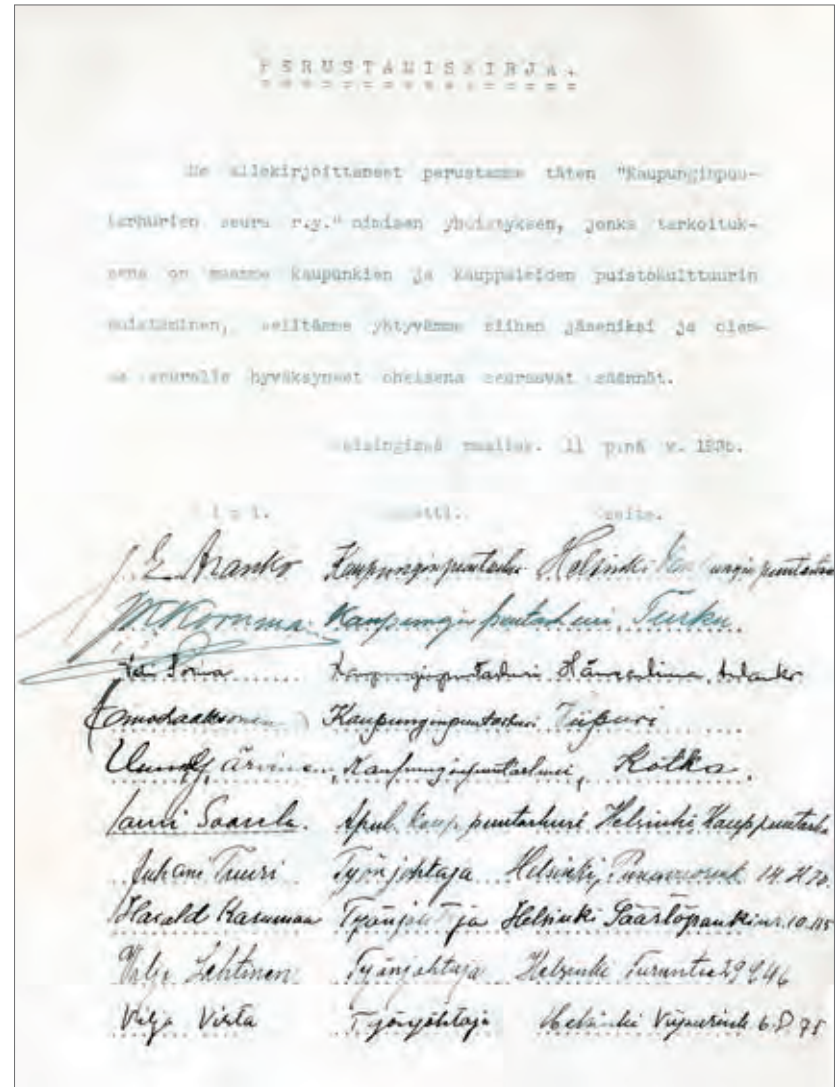 PERUSTAMISKIRJA.
Me allekirjoittaneet perustamme täten "Kaupunginpuu-
tarhurien seura r.y." nimisen yhdistyksen, jonka tarkoituk-
sena on maamme kaupunkien ja kauppaloiden puistokulttuurin
edistäminen, selitämme yhtyvämme siihen jäseniksi ja olem-
me seuralle hyväksyneet oheisena seuraavat säännöt.
Helsingissä maalisk. 11 p:nä v.
Nimi. Ammatti. Osoite.
J. E. Aranko Kaupunginpuutarhuri Helsinki Kaupunginpuutarha
Kaupunginpuutarhuri, Turku.
Kaupunginpuutarhuri Hämeenlinna,
Kaupunginpuutarhuri Viipuri
Kaupunginpuutarhuri, Kotka.
Lauri Saarela. Apul. kaup. puutarhuri Helsinki Kaup. puutarha
Juhani Tuuri Työnjohtaja Helsinki,
Harald Työnjohtaja Helsinki
Viljo Lehtinen Työnjohtaja Helsinki Turuntie
Viljo Virta Työnjohtaja Helsinki Viipurink